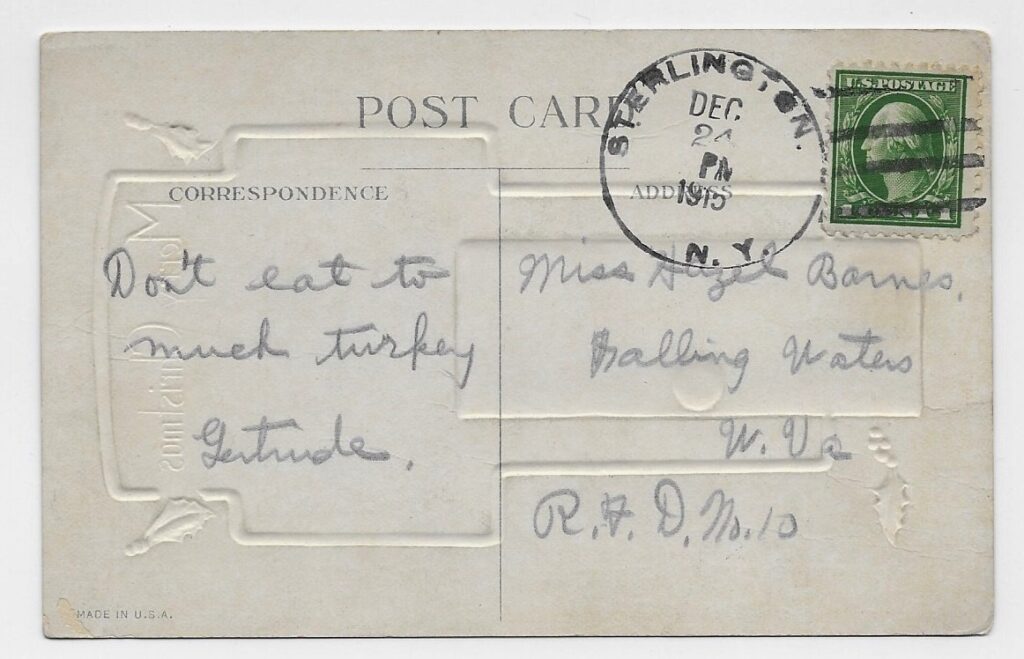 POST CARD
STERLINGTON.
DEC
24
PM
1915
N.Y.
U.S. POSTAGE
1 CENT 1
CORRESPONDENCE
ADDRESS
Merry Christmas
Don't eat to
much turkey
Gertrude.
Miss Hazel Barnes,
Falling Waters
W. Va
R.F.D. No. 10
MADE IN U.S.A.